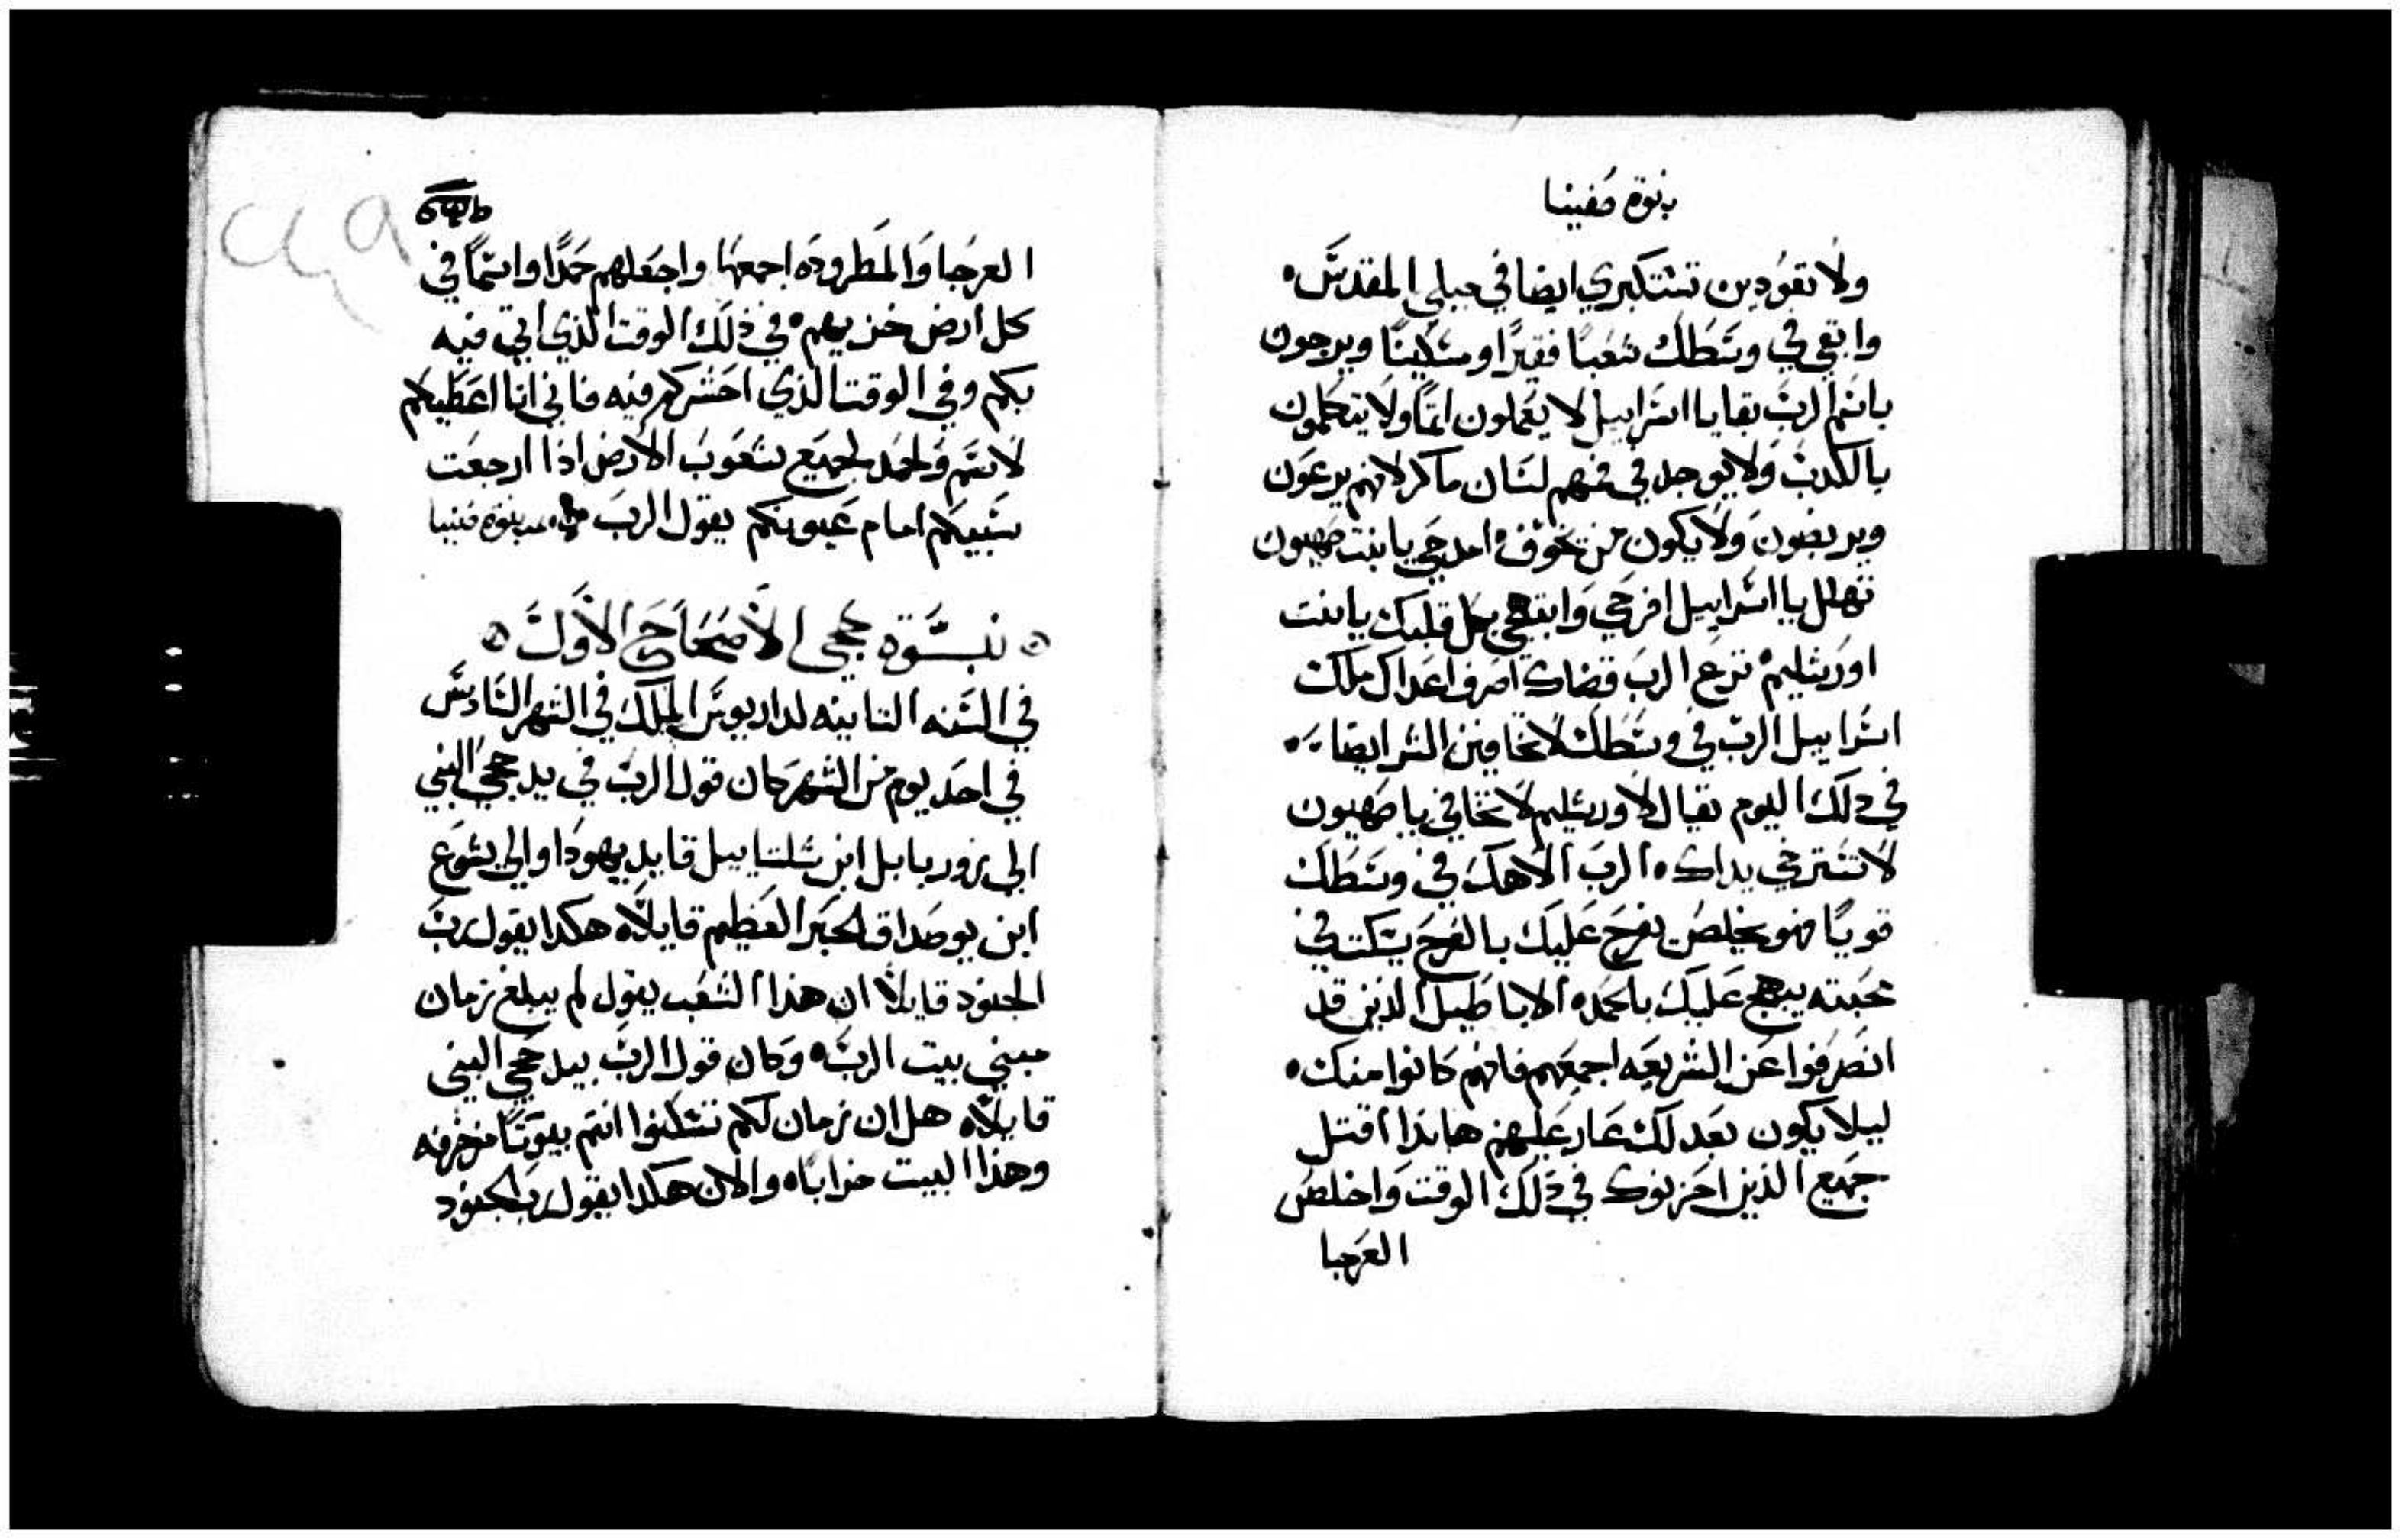 نبوة صفينا
ولا تعودين تستكبري ايضا في جبلي المقدس
وابقي في وسطك شعبا فقيرا ومسكينا ويرجون
باسم الرب بقايا اسراييل لا يعملون اثما ولا يتكلمون
بالكدب ولا يوجد في فمهم لسان ماكر لانهم يرعون
ويربضون ولا يكون من يخوف امدحي يا بنت صهيون
تهلل يا اسراييل افرحي وابتهجي بكل قلبك يا بنت
اورشليم نزع الرب قضاك اصرف اعداك ملك
اسراييل الرب في وسطك لا تخافين الشر ايضا
في دلك اليوم يقال لاورشليم لا تخافي يا صهيون
لا تسترخي يداك الرب الاهك في وسطك
قويا فهو يخلص يفرح عليك بالفرح يسكت في
محبته يبهج عليك بالحمد الاباطيل الذين قد
انصرفوا عن الشريعه اجمعهم فانهم كانوا منك
ليلا يكون بعد لك عار عليهم هانذا اقتل
جميع الذين احزنوك في دلك الوقت واخلص
العرجا
العرجا والمطروده اجمعها واجعلهم حمدا واسما في
كل ارض خزيهم في ذلك الوقت الذي اتي فيه
بكم وفي الوقت الذي احشركم فيه فاني انا اعطيكم
لاسم ولحمد لجميع شعوب الارض اذا ارجعت
سبيكم امام عيونكم يقول الرب نبوة صفينا
نبوة حجي الاصحاح الاول
في السنه التانيه لداريوس الملك في الشهر السادس
في احد يوم من الشهر كان قول الرب في يد حجي النبي
الي زوربابل ابن شلتاييل قايد يهودا والي يشوع
ابن يوصداق الحبر العظيم قايلا هكدا يقول رب
الجنود قايلا ان هذا الشعب يقول لم يبلغ زمان
مبني بيت الرب وكان قول الرب بيد حجي النبي
قايلا هل ان زمان لكم تسكنوا انتم بيوتا مزخرفه
وهذا البيت خرابا والان هكدا يقول رب الجنود